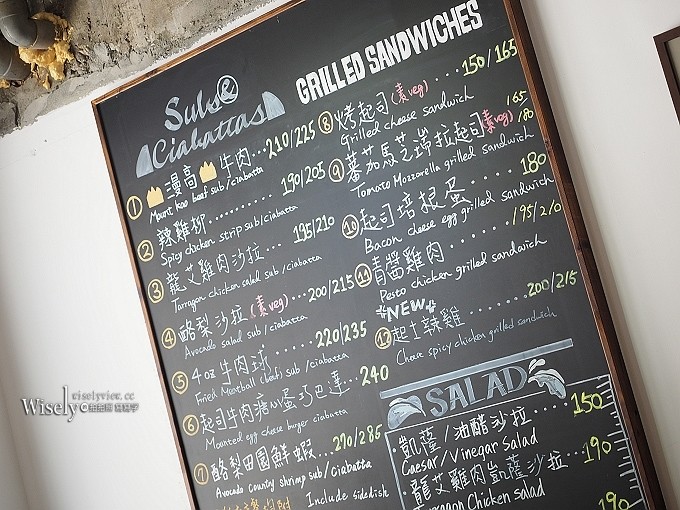 Subs &
Ciabattas
① 漫高 牛肉...210/225
Mount koo beef sub/ciabatta
② 辣雞柳.......... 190/205
Spicy chicken strip sub/ciabatta
③ 龍艾雞肉沙拉.... 195/210
Tarragon chicken salad sub/ciabatta
④ 酪梨沙拉(素veg)...200/215
Avocado salad sub/ciabatta
⑤ 4oz 牛肉球...... 220/235
Fried Meatball (beef) sub/ciabatta
⑥ 起司牛肉豬心蛋巧巴達... 240
Mounted egg cheese burger ciabatta
⑦ 酪梨田園鮮蝦...270/285
Avocado country shrimp sub/ciabatta
Include sidedish
GRILLED SANDWICHES
⑧ 烤起司(素veg)....150/165
Grilled cheese sandwich
⑨ 蕃茄馬芝瑞拉起司(素veg) 165/180
Tomato Mozzarella grilled sandwich
⑩ 起司培根蛋...... 180
Bacon cheese egg grilled sandwich
⑪ 青醬雞肉....... 195/210
Pesto chicken grilled sandwich
*NEW*
⑫ 起士辣雞....... 200/215
Cheese spicy chicken grilled sandwich
SALAD
凱薩/油醋沙拉.... 150
Caesar/Vinegar Salad
龍艾雞肉凱薩沙拉... 190
Tarragon Chicken salad
190
wiselyview.cc
Wisely